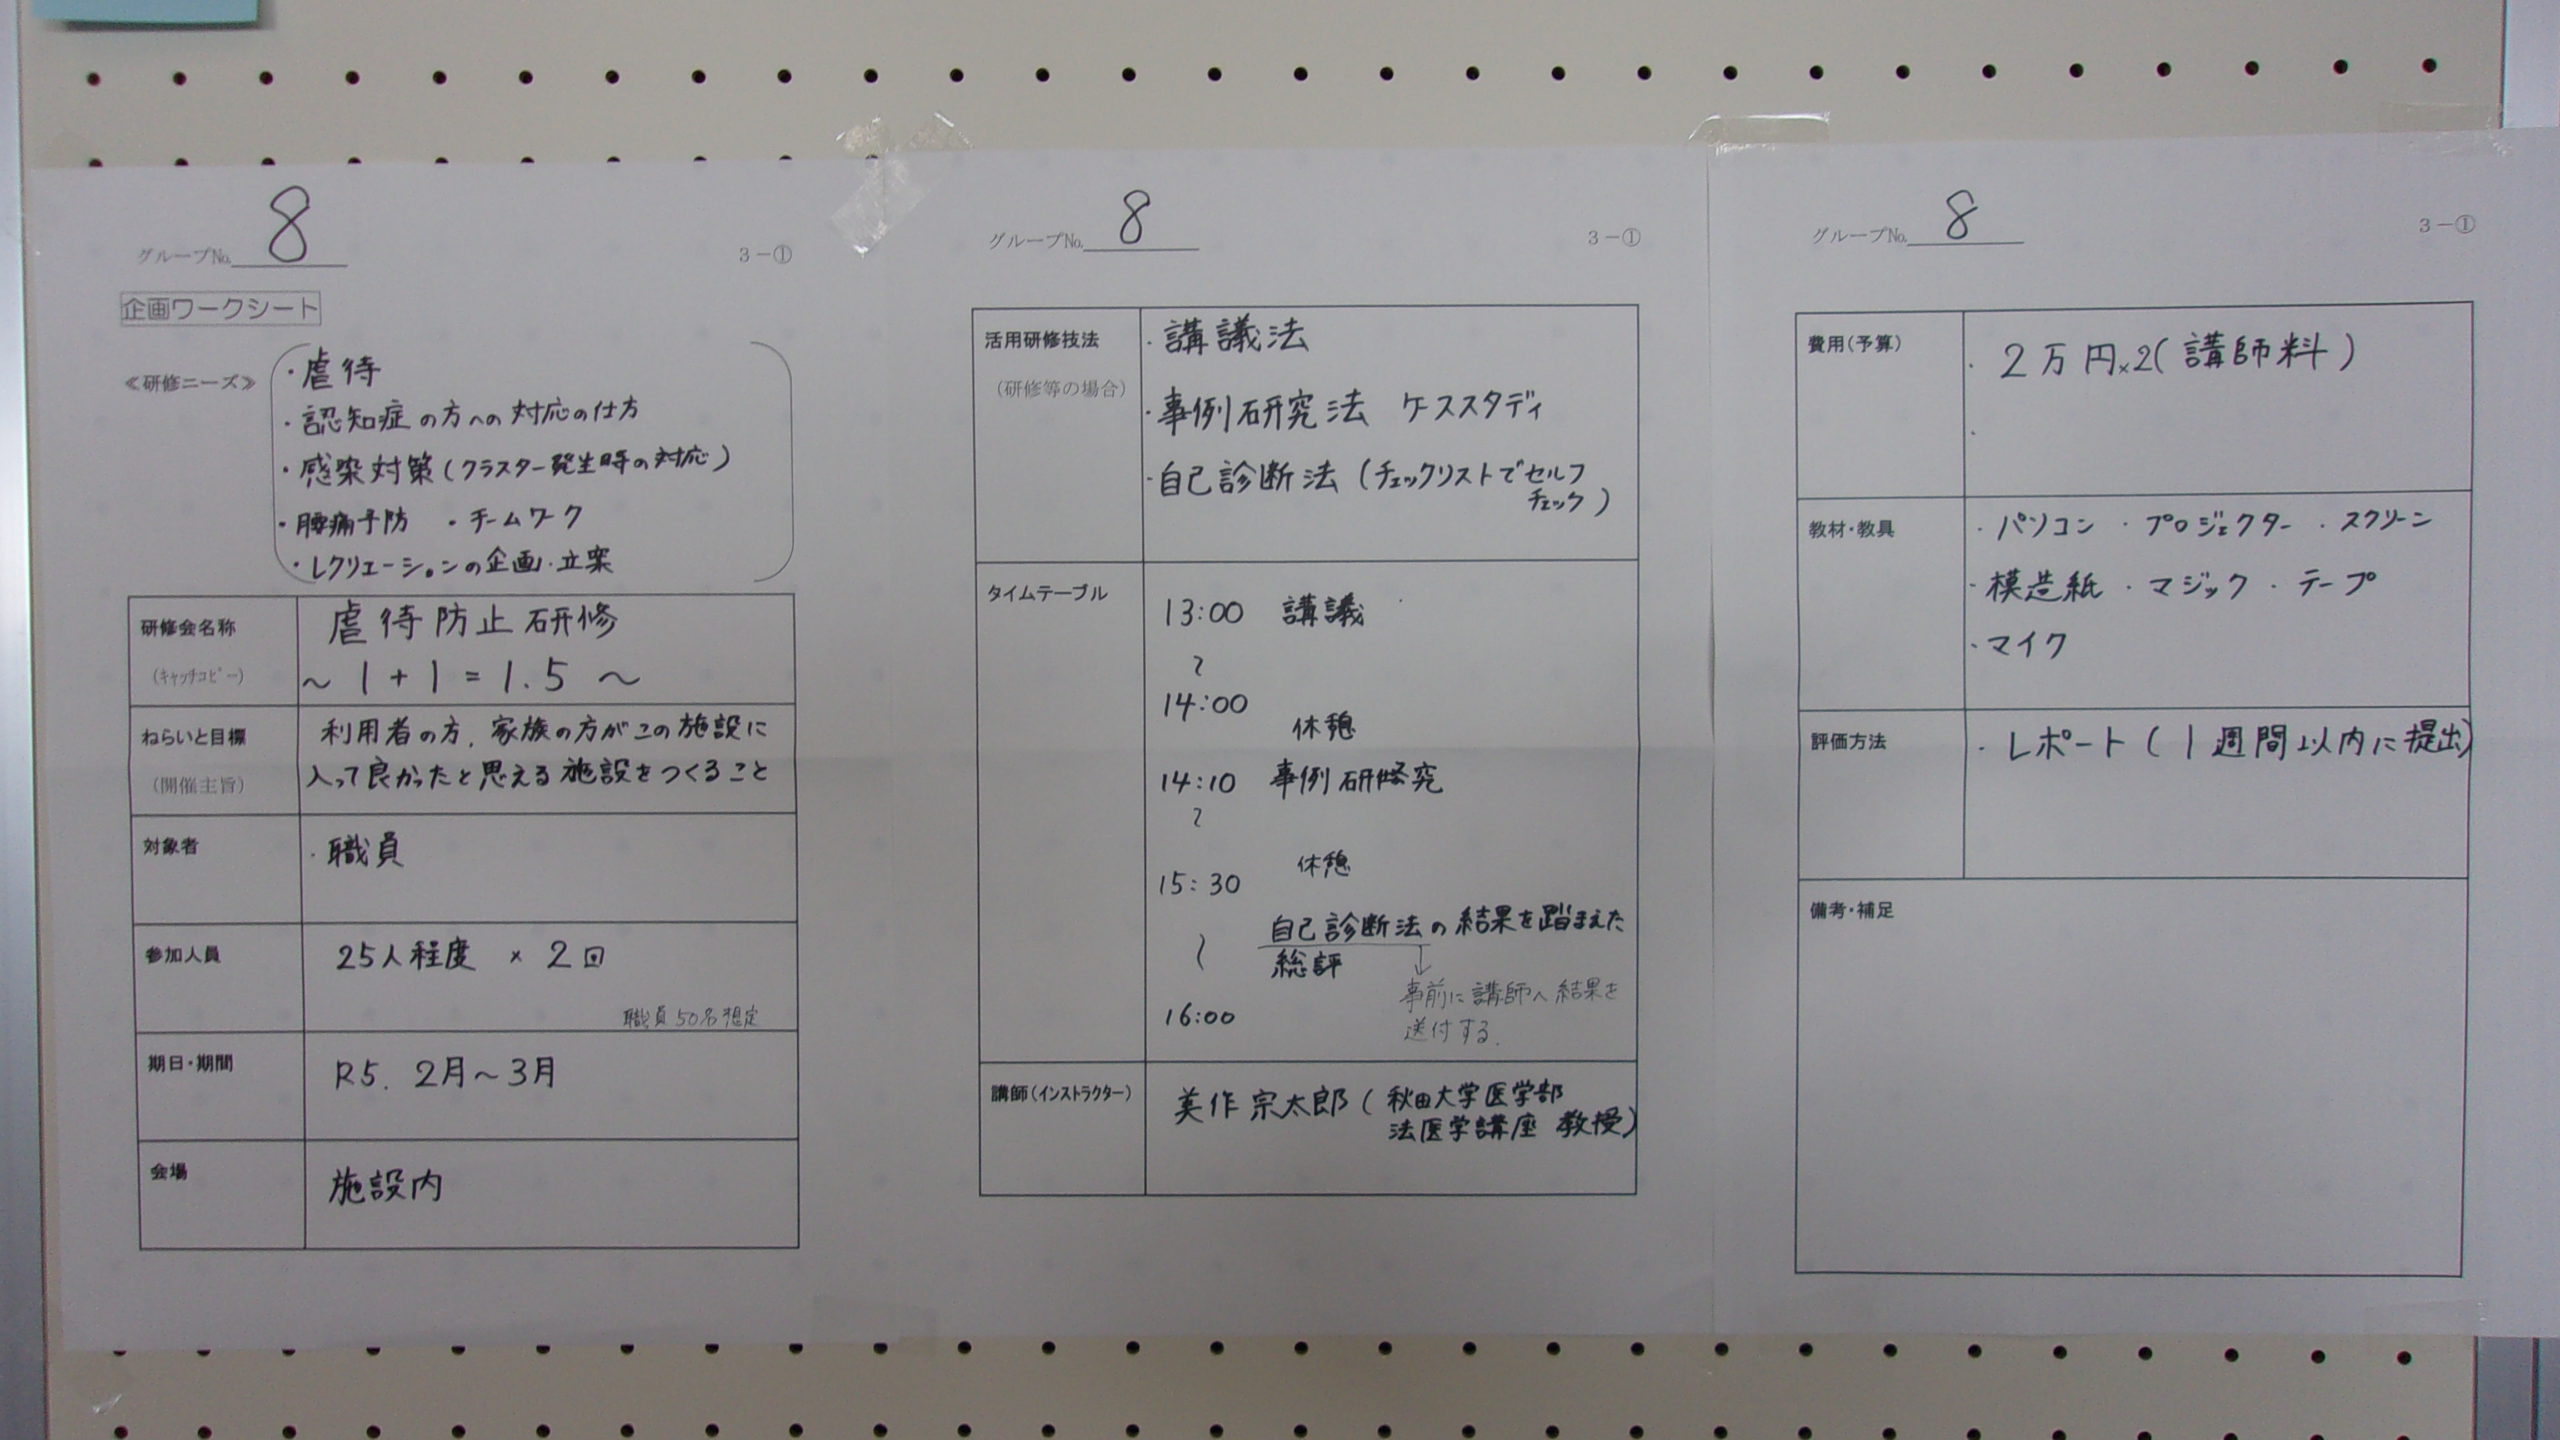 グループNo. 8
3－①
企画ワークシート
≪研修ニーズ≫
・虐待
・認知症の方への対応の仕方
・感染対策(クラスター発生時の対応)
・腰痛予防 ・チームワーク
・レクリエーションの企画・立案
研修会名称
(キャッチコピー)
虐待防止研修
～1＋1＝1.5～
ねらいと目標
(開催主旨)
利用者の方、家族の方がこの施設に
入って良かったと思える施設をつくること
対象者
・職員
参加人員
25人程度 × 2回
職員50名想定
期日・期間
R5. 2月～3月
会場
施設内
グループNo. 8
3－①
活用研修技法
(研修等の場合)
・講議法
・事例研究法 ケーススタディ
・自己診断法(チェックリストでセルフ
チェック)
タイムテーブル
13:00 講議
～
14:00
休憩
14:10 事例研究
～
休憩
15:30
自己診断法の結果を踏まえた
～ 総評
↓
事前に講師へ結果を
送付する.
16:00
講師(インストラクター)
美作宗太郎(秋田大学医学部
法医学講座 教授)
グループNo. 8
3－①
費用(予算)
・2万円×2(講師料)
・
教材・教具
・パソコン ・プロジェクター ・スクリーン
・模造紙 ・マジック ・テープ
・マイク
評価方法
・レポート(1週間以内に提出)
備考・補足